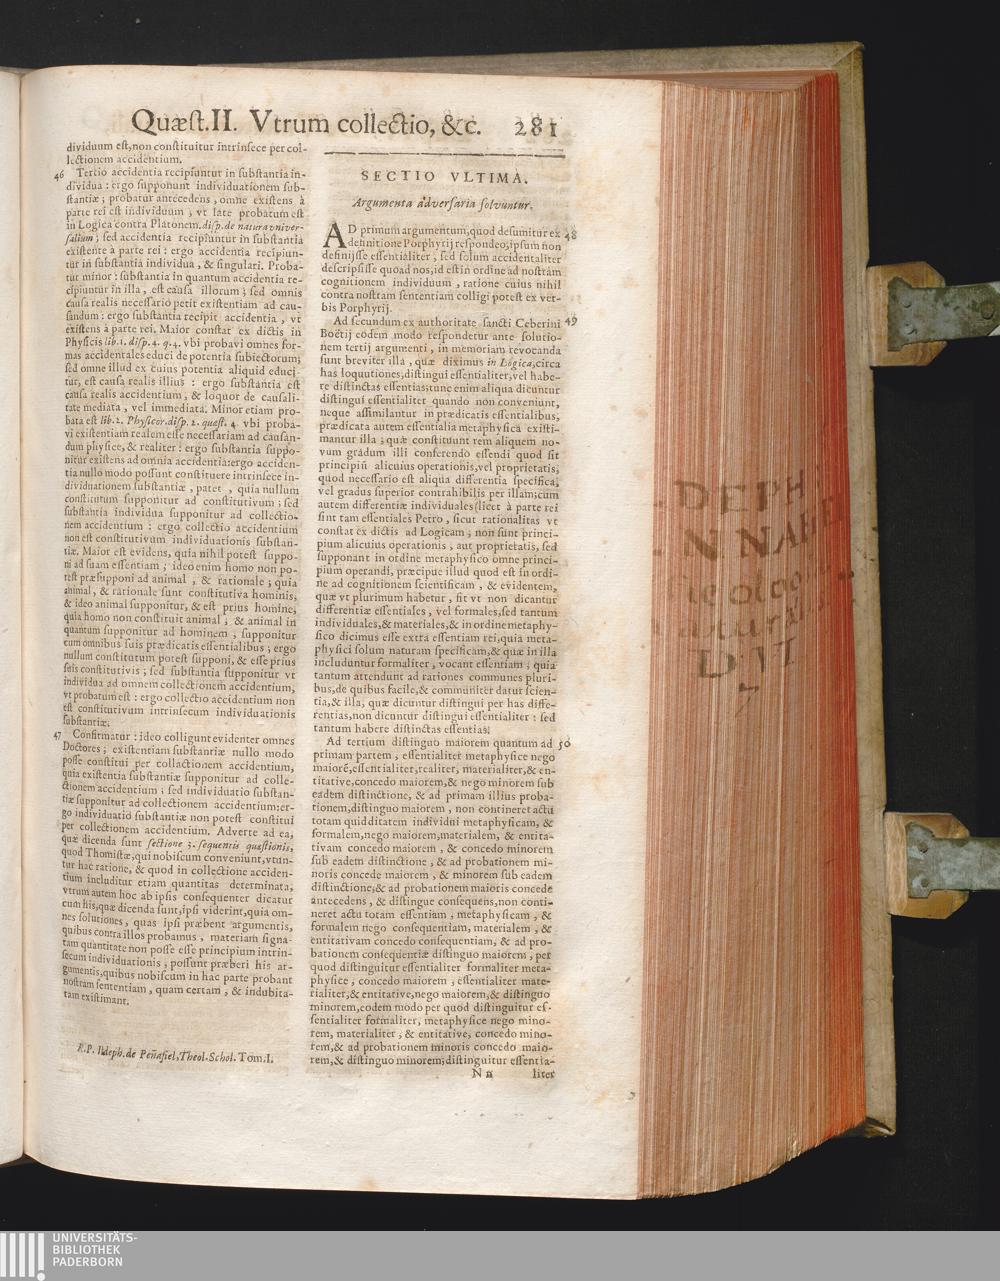 Quæſt.II. Vtrum collectio, &c. 281
dividuum eſt,non conſtituitur intrinſece per col-
lectionem accidentium.
46 Tertio accidentia recipiuntur in ſubſtantia in-
dividua : ergo ſupponunt individuationem ſub-
ſtantiæ ; probatur antecedens , omne exiſtens à
parte rei eſt individuum , vt late probatum eſt
in Logica contra Platonem.diſp.de natura vniver-
ſalium ; ſed accidentia recipiuntur in ſubſtantia
exiſtente à parte rei : ergo accidentia recipiun-
tur in ſubſtantia individua , & ſingulari. Proba-
tur minor : ſubſtantia in quantum accidentia re-
cipiuntur in illa , eſt cauſa illorum ; ſed omnis
cauſa realis neceſſario petit exiſtentiam ad cau-
ſandum : ergo ſubſtantia recipit accidentia , vt
exiſtens à parte rei. Maior conſtat ex dictis in
Phyſicis lib.1. diſp.4. q.4. vbi probavi omnes for-
mas accidentales educi de potentia ſubiectorum;
ſed omne illud ex cuius potentia aliquid educi-
tur, eſt cauſa realis illius : ergo ſubſtantia eſt
cauſa realis accidentium , & loquor de cauſali-
tate mediata , vel immediata. Minor etiam pro-
bata eſt lib.2. Phyſicor.diſp. 2. quæſt. 4. vbi proba-
vi exiſtentiam realem eſſe neceſſariam ad cauſan-
dum phyſice, & realiter : ergo ſubſtantia ſuppo-
nitur exiſtens ad omnia accidentia:ergo acciden-
tia nullo modo poſſunt conſtituere intrinſece in-
dividuationem ſubſtantiæ , patet , quia nullum
conſtitutum ſupponitur ad conſtitutivum ; ſed
ſubſtantia individua ſupponitur ad collectio-
nem accidentium : ergo collectio accidentium
non eſt conſtitutivum individuationis ſubſtan-
tiæ. Maior eſt evidens, quia nihil poteſt ſuppo-
ni ad ſuam eſſentiam ; ideo enim homo non po-
teſt præſupponi ad animal , & rationale ; quia
animal, & rationale ſunt conſtitutiva hominis,
& ideo animal ſupponitur, & eſt prius homine,
quia homo non conſtituit animal ; & animal in
quantum ſupponitur ad hominem , ſupponitur
cum omnibus ſuis prædicatis eſſentialibus ; ergo
nullum conſtitutum poteſt ſupponi, & eſſe prius
ſuis conſtitutivis ; ſed ſubſtantia ſupponitur vt
individua ad omnem collectionem accidentium,
vt probatum eſt : ergo collectio accidentium non
eſt conſtitutivum intrinſecum individuationis
ſubſtantiæ.
47 Confirmatur : ideo colligunt evidenter omnes
Doctores ; exiſtentiam ſubſtantiæ nullo modo
poſſe conſtitui per collactionem accidentium,
quia exiſtentia ſubſtantiæ ſupponitur ad colle-
ctionem accidentium ; ſed individuatio ſubſtan-
tiæ ſupponitur ad collectionem accidentium:er-
go individuatio ſubſtantiæ non poteſt conſtitui
per collectionem accidentium. Adverte ad ea,
quæ dicenda ſunt ſectione 3. ſequentis quæſtionis,
quod Thomiſtæ,qui nobiſcum conveniunt,vtun-
tur hac ratione, & quod in collectione acciden-
tium includitur etiam quantitas determinata,
vtrum autem hoc ab ipſis conſequenter dicatur
cum his,quæ dicenda ſunt;ipſi viderint,quia om-
nes ſolutiones , quas ipſi præbent argumentis,
quibus contra illos probamus , materiam ſigna-
tam quantitate non poſſe eſſe principium intrin-
ſecum individuationis , poſſunt præberi his ar-
gumentis,quibus nobiſcum in hac parte probant
noſtram ſententiam , quam certam , & indubita-
tam exiſtimant.
R.P. Ildeph.de Peñafiel,Theol.Schol. Tom.I.
SECTIO VLTIMA.
Argumenta adverſaria ſolvuntur.
AD primum argumentum,quod deſumitur ex 48
definitione Porphyrij reſpondeo;ipſum non
definijſſe eſſentialiter , ſed ſolum accidentaliter
deſcripſiſſe quoad nos,id eſt in ordine ad noſtram
cognitionem individuum , ratione cuius nihil
contra noſtram ſententiam colligi poteſt ex ver-
bis Porphyrij.
Ad ſecundum ex authoritate ſancti Ceberini 49
Boëtij eodem modo reſpondetur ante ſolutio-
nem tertij argumenti , in memoriam revocanda
ſunt breviter illa , quæ diximus in Logica,circa
has loquutiones;diſtingui eſſentialiter,vel habe-
re diſtinctas eſſentias;tunc enim aliqua dicuntur
diſtingui eſſentialiter quando non conveniunt,
neque aſſimilantur in prædicatis eſſentialibus,
prædicata autem eſſentialia metaphyſica exiſti-
mantur illa ; quæ conſtituunt rem aliquem no-
vum gradum illi conferendo eſſendi quod ſit
principiū alicuius operationis,vel proprietatis,
quod neceſſario eſt aliqua differentia ſpecifica,
vel gradus ſuperior contrahibilis per illam;cum
autem differentiæ individuales (licet à parte rei
ſint tam eſſentiales Petro , ſicut rationalitas vt
conſtat ex dictis ad Logicam ; non ſunt princi-
pium alicuius operationis , aut proprietatis, ſed
ſupponant in ordine metaphyſico omne princi-
pium operandi, præcipue illud quod eſt in ordi-
ne ad cognitionem ſcientificam , & evidentem,
quæ vt plurimum habetur , fit vt non dicantur
differentiæ eſſentiales , vel formales,ſed tantum
individuales,& materiales,& in ordine metaphy-
ſico dicimus eſſe extra eſſentiam rei,quia meta-
phyſici ſolum naturam ſpecificam,& quæ in illa
includuntur formaliter , vocant eſſentiam ; quia
tantum attendunt ad rationes communes pluri-
bus,de quibus facile,& communiter datur ſcien-
tia,& illa, quæ dicuntur diſtingui per has diffe-
rentias,non dicuntur diſtingui eſſentialiter : ſed
tantum habere diſtinctas eſſentias.
Ad tertium diſtinguo maiorem quantum ad 50
primam partem , eſſentialiter metaphyſice nego
maiorē,eſſentialiter,realiter, materialiter,& en-
titative,concedo maiorem,& nego minorem ſub
eadem diſtinctione, & ad primam illius proba-
tionem,diſtinguo maiorem , non contineret actu
totam quidditatem individui metaphyſicam, &
formalem,nego maiorem,materialem, & entita-
tivam concedo maiorem , & concedo minorem
ſub eadem diſtinctione , & ad probationem mi-
noris concede maiorem , & minorem ſub eadem
diſtinctione;& ad probationem maioris concede
antecedens , & diſtingue conſequens,non conti-
neret actu totam eſſentiam , metaphyſicam , &
formalem nego conſequentiam, materialem , &
entitativam concedo conſequentiam, & ad pro-
bationem conſequentiæ diſtinguo maiorem , per
quod diſtinguitur eſſentialiter formaliter meta-
phyſice , concedo maiorem ; eſſentialiter mate-
rialiter,& entitative,nego maiorem,& diſtinguo
minorem,eodem modo per quod diſtinguitur eſ-
ſentialiter formaliter, metaphyſice nego mino-
rem, materialiter , & entitative, concedo mino-
rem,& ad probationem minoris concedo maio-
rem,& diſtinguo minorem;diſtinguitur eſſentia-
N n liter
DEPH
UNIVERSITÄTS-
BIBLIOTHEK
PADERBORN